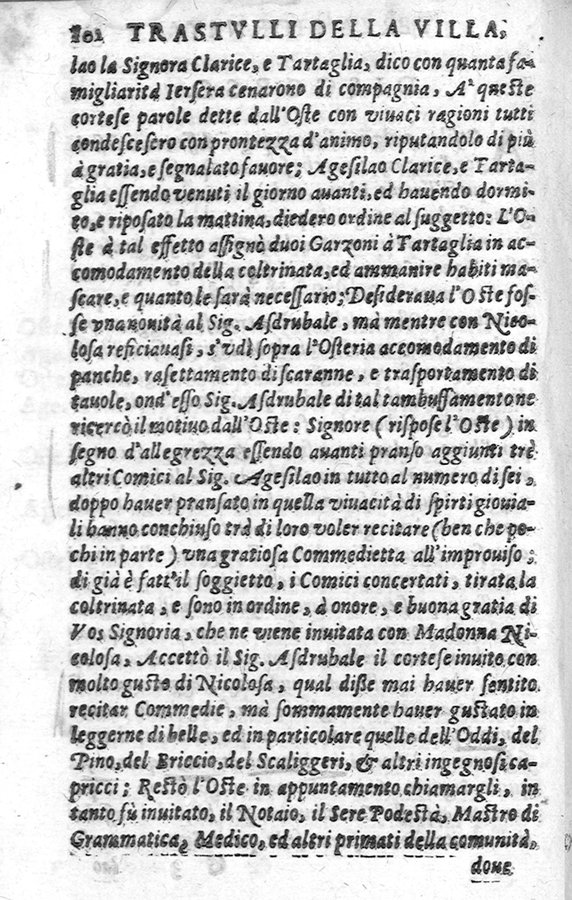 102 TRASTVLLI DELLA VILLA,
lao la Signora Clarice, e Tartaglia, dico con quanta fa-
migliarità Iersera cenarono di compagnia, A' queste
cortese parole dette dall'Oste con viuaci ragioni tutti
condescesero con prontezza d'animo, riputandolo di più
à gratia, e segnalato fauore; Agesilao Clarice, e Tarta-
glia essendo venuti il giorno auanti, ed hauendo dormi-
to, e riposato la mattina, diedero ordine al suggetto: L'O-
ste à tal effetto assignò duoi Garzoni à Tartaglia in ac-
comodamento della coltrinata, ed ammanire habiti ma-
scare, e quanto le sarà necessario; Desideraua l'Oste fos-
se vna nouità al Sig. Asdrubale, mà mentre con Nico-
losa reficiauasi, s'vdì sopra l'Osteria accomodamento di
panche, rasettamento di scaranne, e trasportamento di
tauole, ond'esso Sig. Asdrubale di tal tambussamento ne
ricercò il motiuo dall'Oste: Signore (rispose l'Oste) in
segno d'allegrezza essendo auanti pranso aggiunti trè
altri Comici al Sig. Agesilao in tutto al numero di sei,
doppo hauer pransato in quella viuacità di spirti giouia-
li hanno conchiuso trà di loro voler recitare (ben che po-
chi in parte) vna gratiosa Commedietta all'improuiso;
di già è fatt'il soggietto, i Comici concertati, tirata la
coltrinata, e sono in ordine, à onore, e buona gratia di
Vos Signoria, che ne viene inuitata con Madonna Ni-
colosa, Accettò il Sig. Asdrubale il cortese inuito con
molto gusto di Nicolosa, qual disse mai hauer sentito
recitar Commedie, mà sommamente hauer gustato in
leggerne di belle, ed in particolare quelle dell'Oddi, del
Pino, del Briccio, del Scaliggeri, & altri ingegnosi ca-
pricci; Restò l'Oste in appuntamento chiamargli, in
tanto fù inuitato, il Notaio, il Sere Podestà, Mastro di
Grammatica, Medico, ed altri primati della comunità,
doue